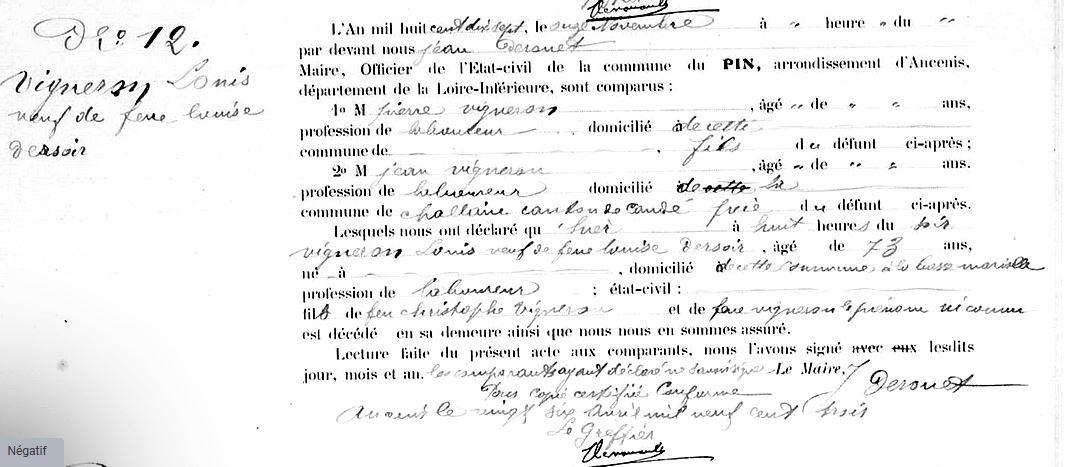 No 12.
Vigneron Louis
veuf de feue Louise
Dersoir
L'An mil huit cent dix sept, le onze Novembre à " heure " du "
par devant nous jean Derouet
Maire, Officier de l'Etat-civil de la commune du PIN, arrondissement d'Ancenis,
département de la Loire-Inférieure, sont comparus :
1o M pierre vigneron , âgé " de " " ans,
profession de laboureur domicilié de cette
commune de , fils du défunt ci-après ;
2o M jean vigneron , âgé " de " " ans.
profession de laboureur domicilié de cette la
commune de challain canton de candé frère du défunt ci-après.
Lesquels nous ont déclaré qu'hier à huit heures du soir
vigneron Louis veuf de feue Louise Dersoir , âgé de 73 ans,
né à , domicilié de cette commune à la
profession de laboureur ; état-civil :
fils de feu christophe Vigneron et de feue vigneron le prénom inconnu
est décédé en sa demeure ainsi que nous nous en sommes assuré.
Lecture faite du présent acte aux comparants, nous l'avons signé avec eux lesdits
jour, mois et an. les comparants ayant déclaré ne savoir signer Le Maire, Derouet
Pour copie certifiée Conforme
Ancenis le vingt six avril mil neuf cent trois
Le Greffier
Négatif